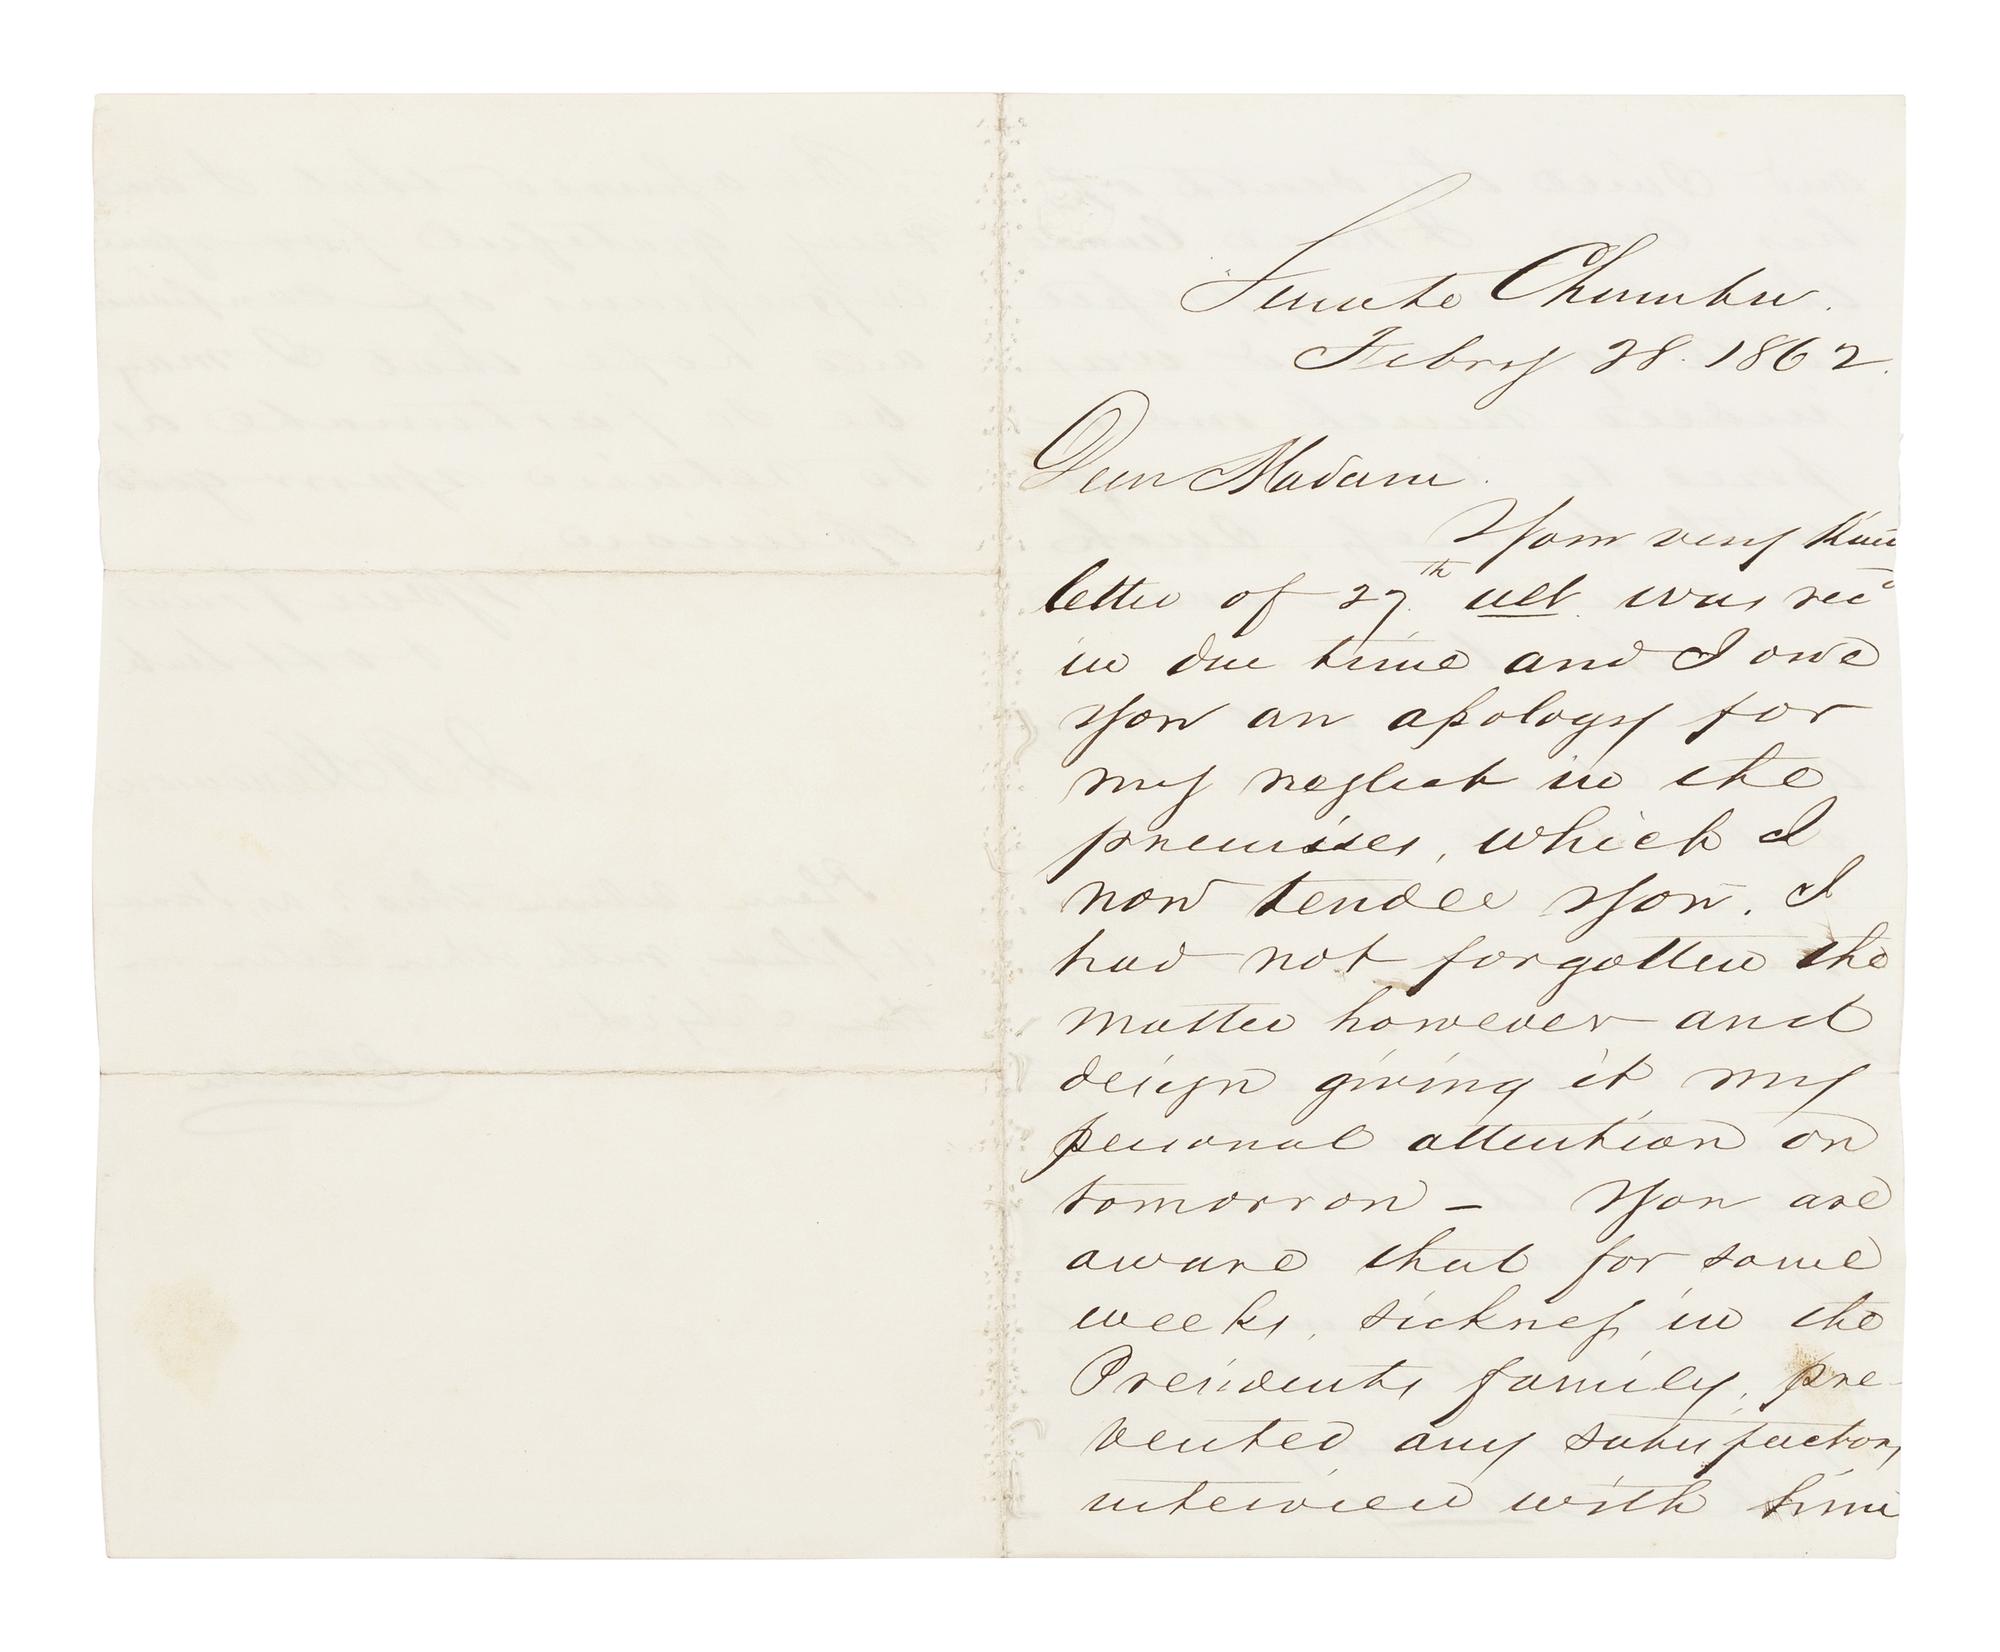 Senate Chamber.
Febry 28. 1862.
Dear Madam.
Your very kind
letter of 27th ult. was recd
in due time and I owe
you an apology for
my neglect in the
premises, which I
now tender you. I
had not forgotten the
matter however and
design giving it my
personal attention on
tomorrow – You are
aware that for some
weeks, sickness in the
Presidents family, pre-
vented any satisfactory
interview with him